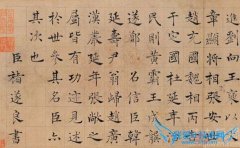 進劉向王褒以文
章顯將相張安世
趙充國魏相丙吉
于定國杜延年治
民則黃霸王成龔
遂鄭弘召信臣韓
延壽尹翁歸趙廣
漢嚴延年張敞之
屬皆有功迹見述
於世參其名臣亦
其次也
臣褚遂良書